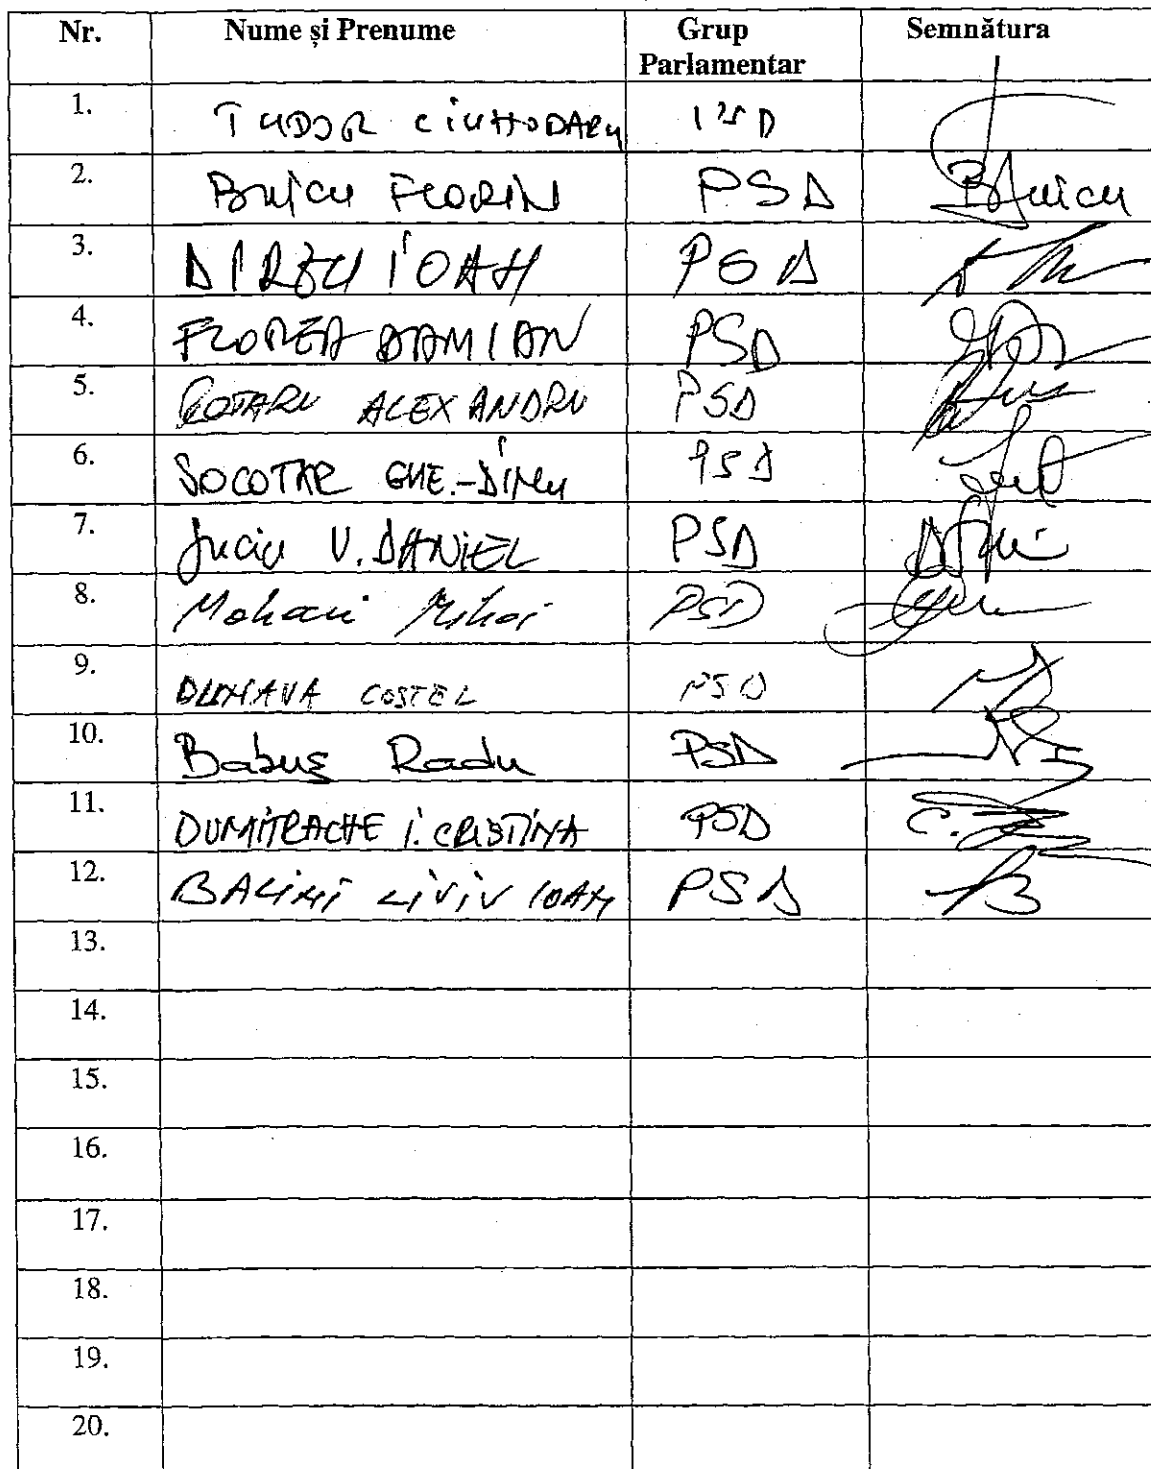 Nr. Nume și Prenume Grup Parlamentar Semnătura
1. TUDOR CIUHODARU PSD
2. Buicu FLORIN PSD BFuicu
3. DIRZU IOAN PSD
4. FLOREA DAMIAN PSD
5. ROTARU ALEXANDRU PSD
6. SOCOTAR GHE.-DINU PSD
7. Suciu V. DANIEL PSD
8. Mohaci Mihai PSD
9. DUNAVA COSTEL PSD
10. Babuș Radu PSD
11. DUMITRACHE I. CRISTINA PSD
12. BALINT LIVIU IOAN PSD
13.
14.
15.
16.
17.
18.
19.
20.